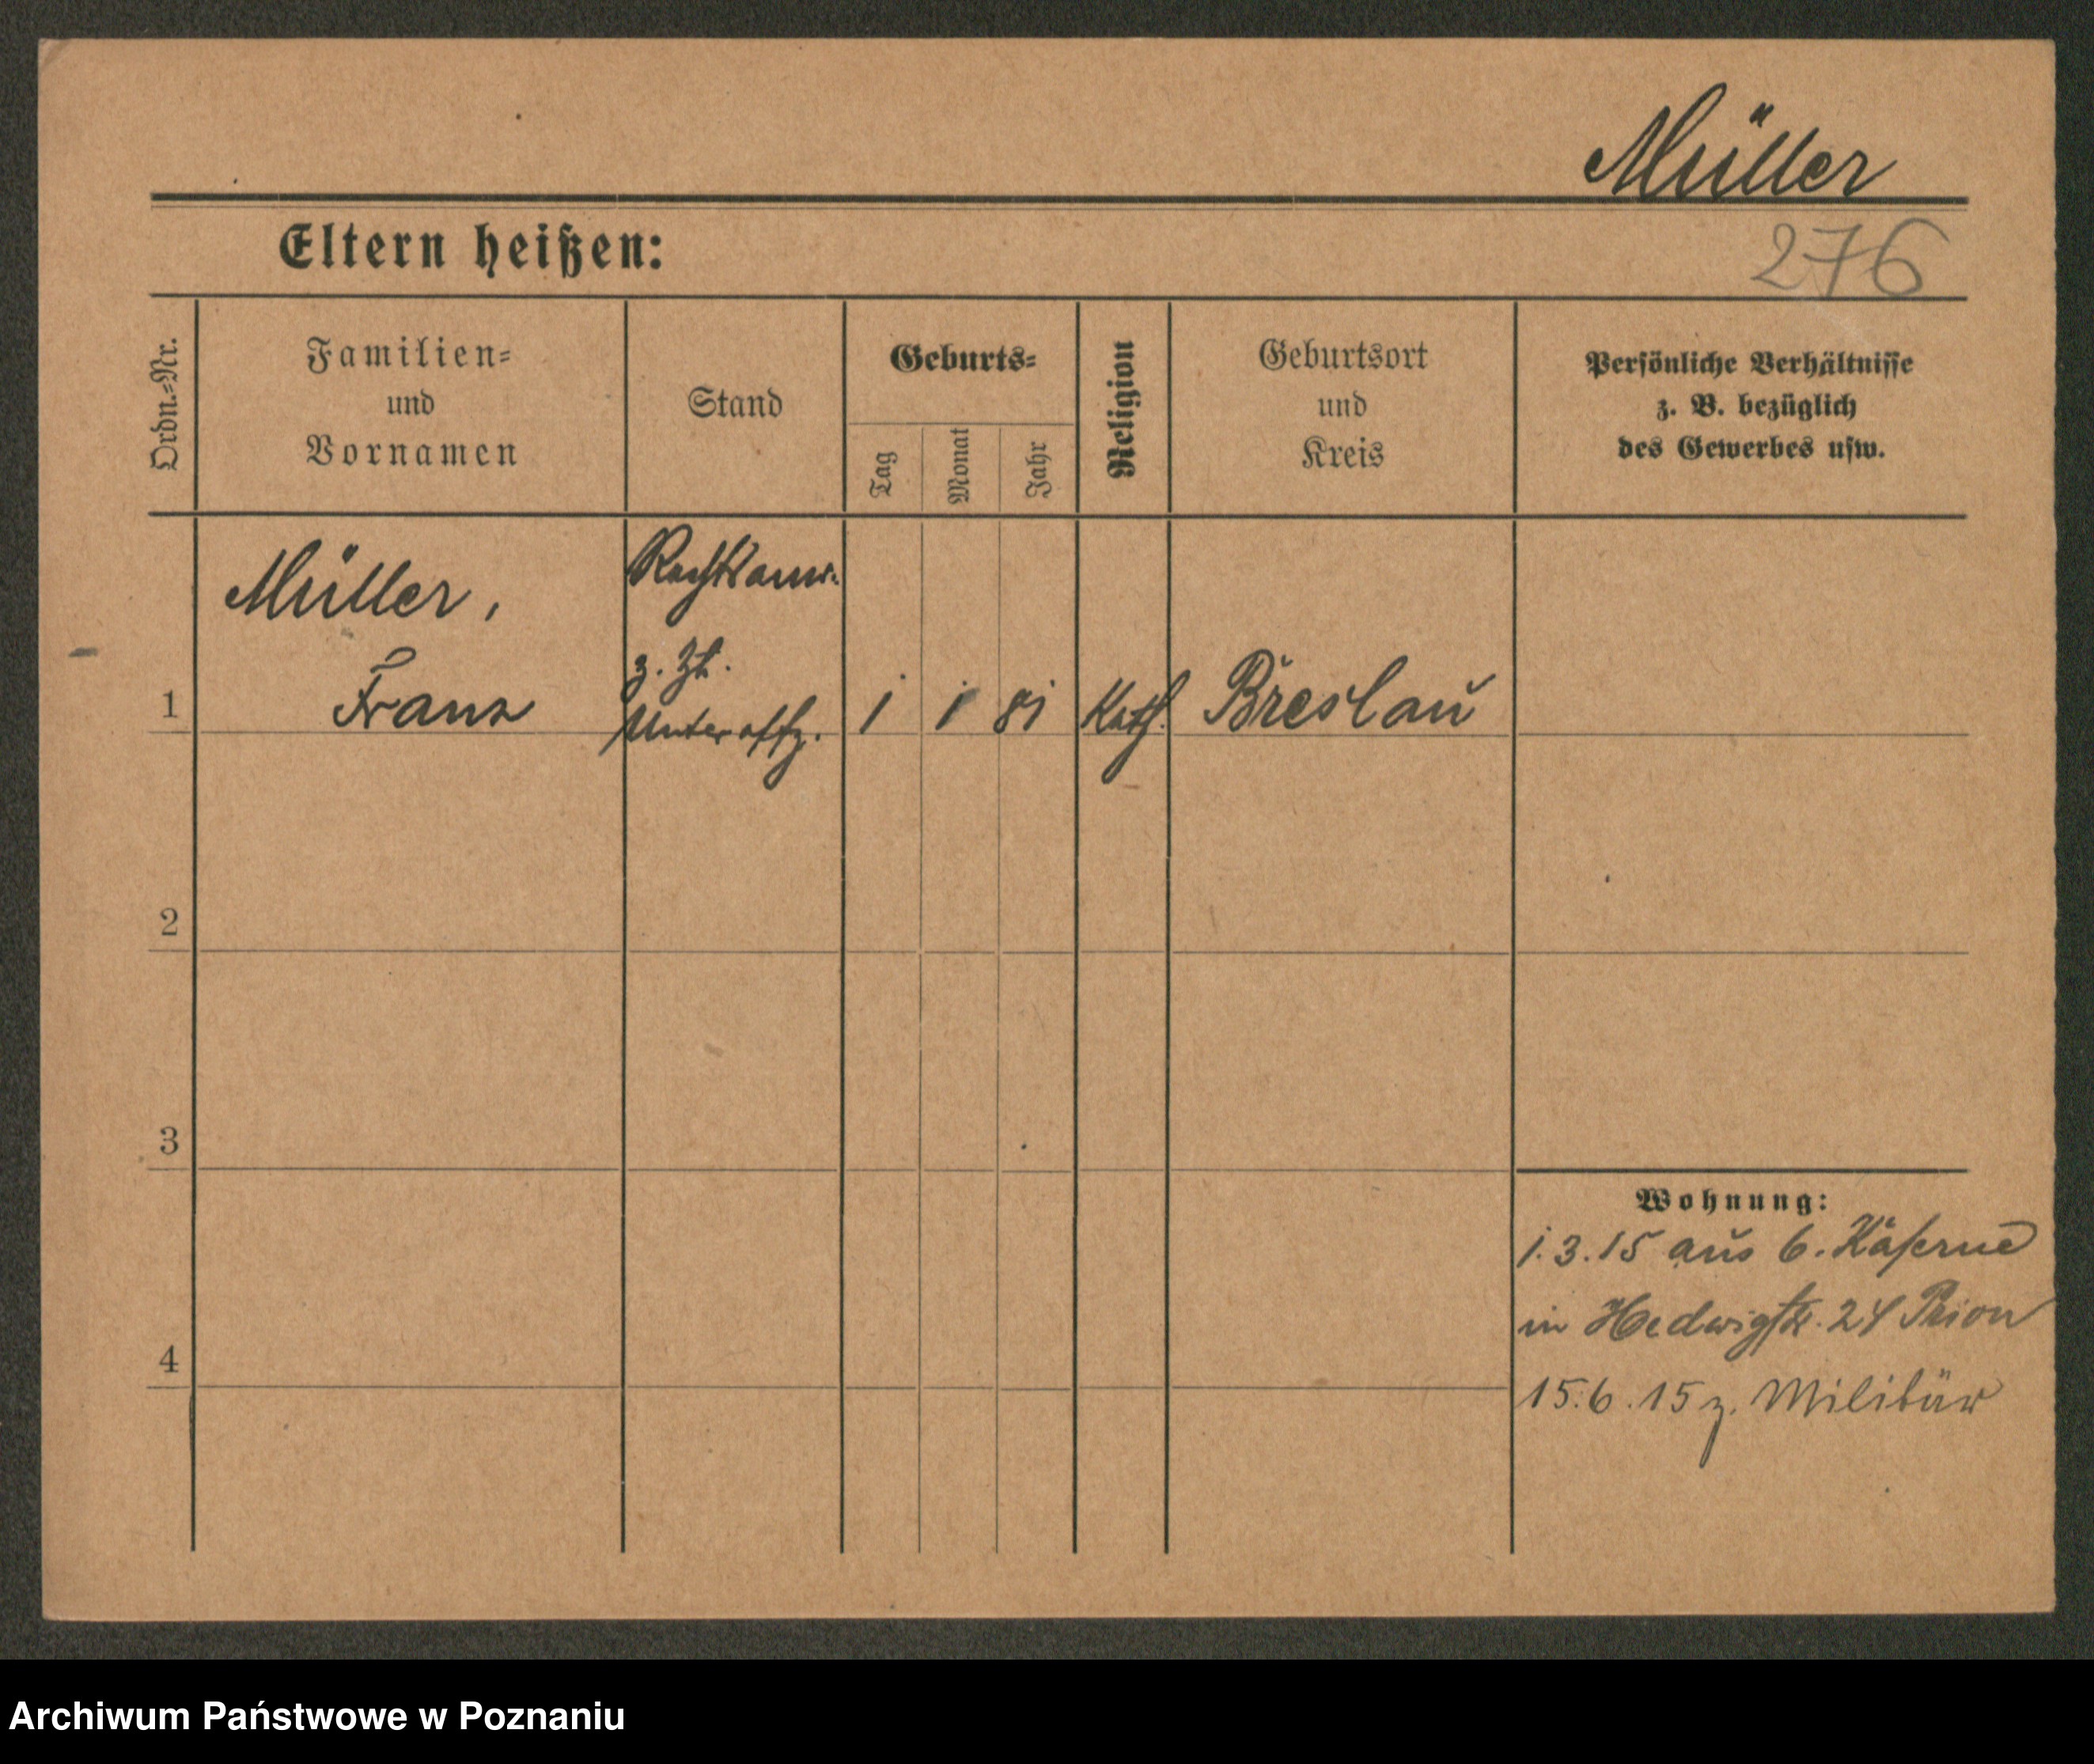 Müller
Eltern heißen:
276
Ordn.-Nr.
Familien-
und
Vornamen
Stand
Geburts-
Tag
Monat
Jahr
Religion
Geburtsort
und
Kreis
Persönliche Verhältnisse
z. B. bezüglich
des Gewerbes usw.
Müller,
Franz
Rechtsanw.
z. Zt.
Unteroffz.
1
1
1
81
Kath.
Breslau
2
3
4
Wohnung:
1.3.15 aus 6. Kaserne
in Hedwigstr. 24 Prion
15.6.15 z. Militär
Archiwum Państwowe w Poznaniu